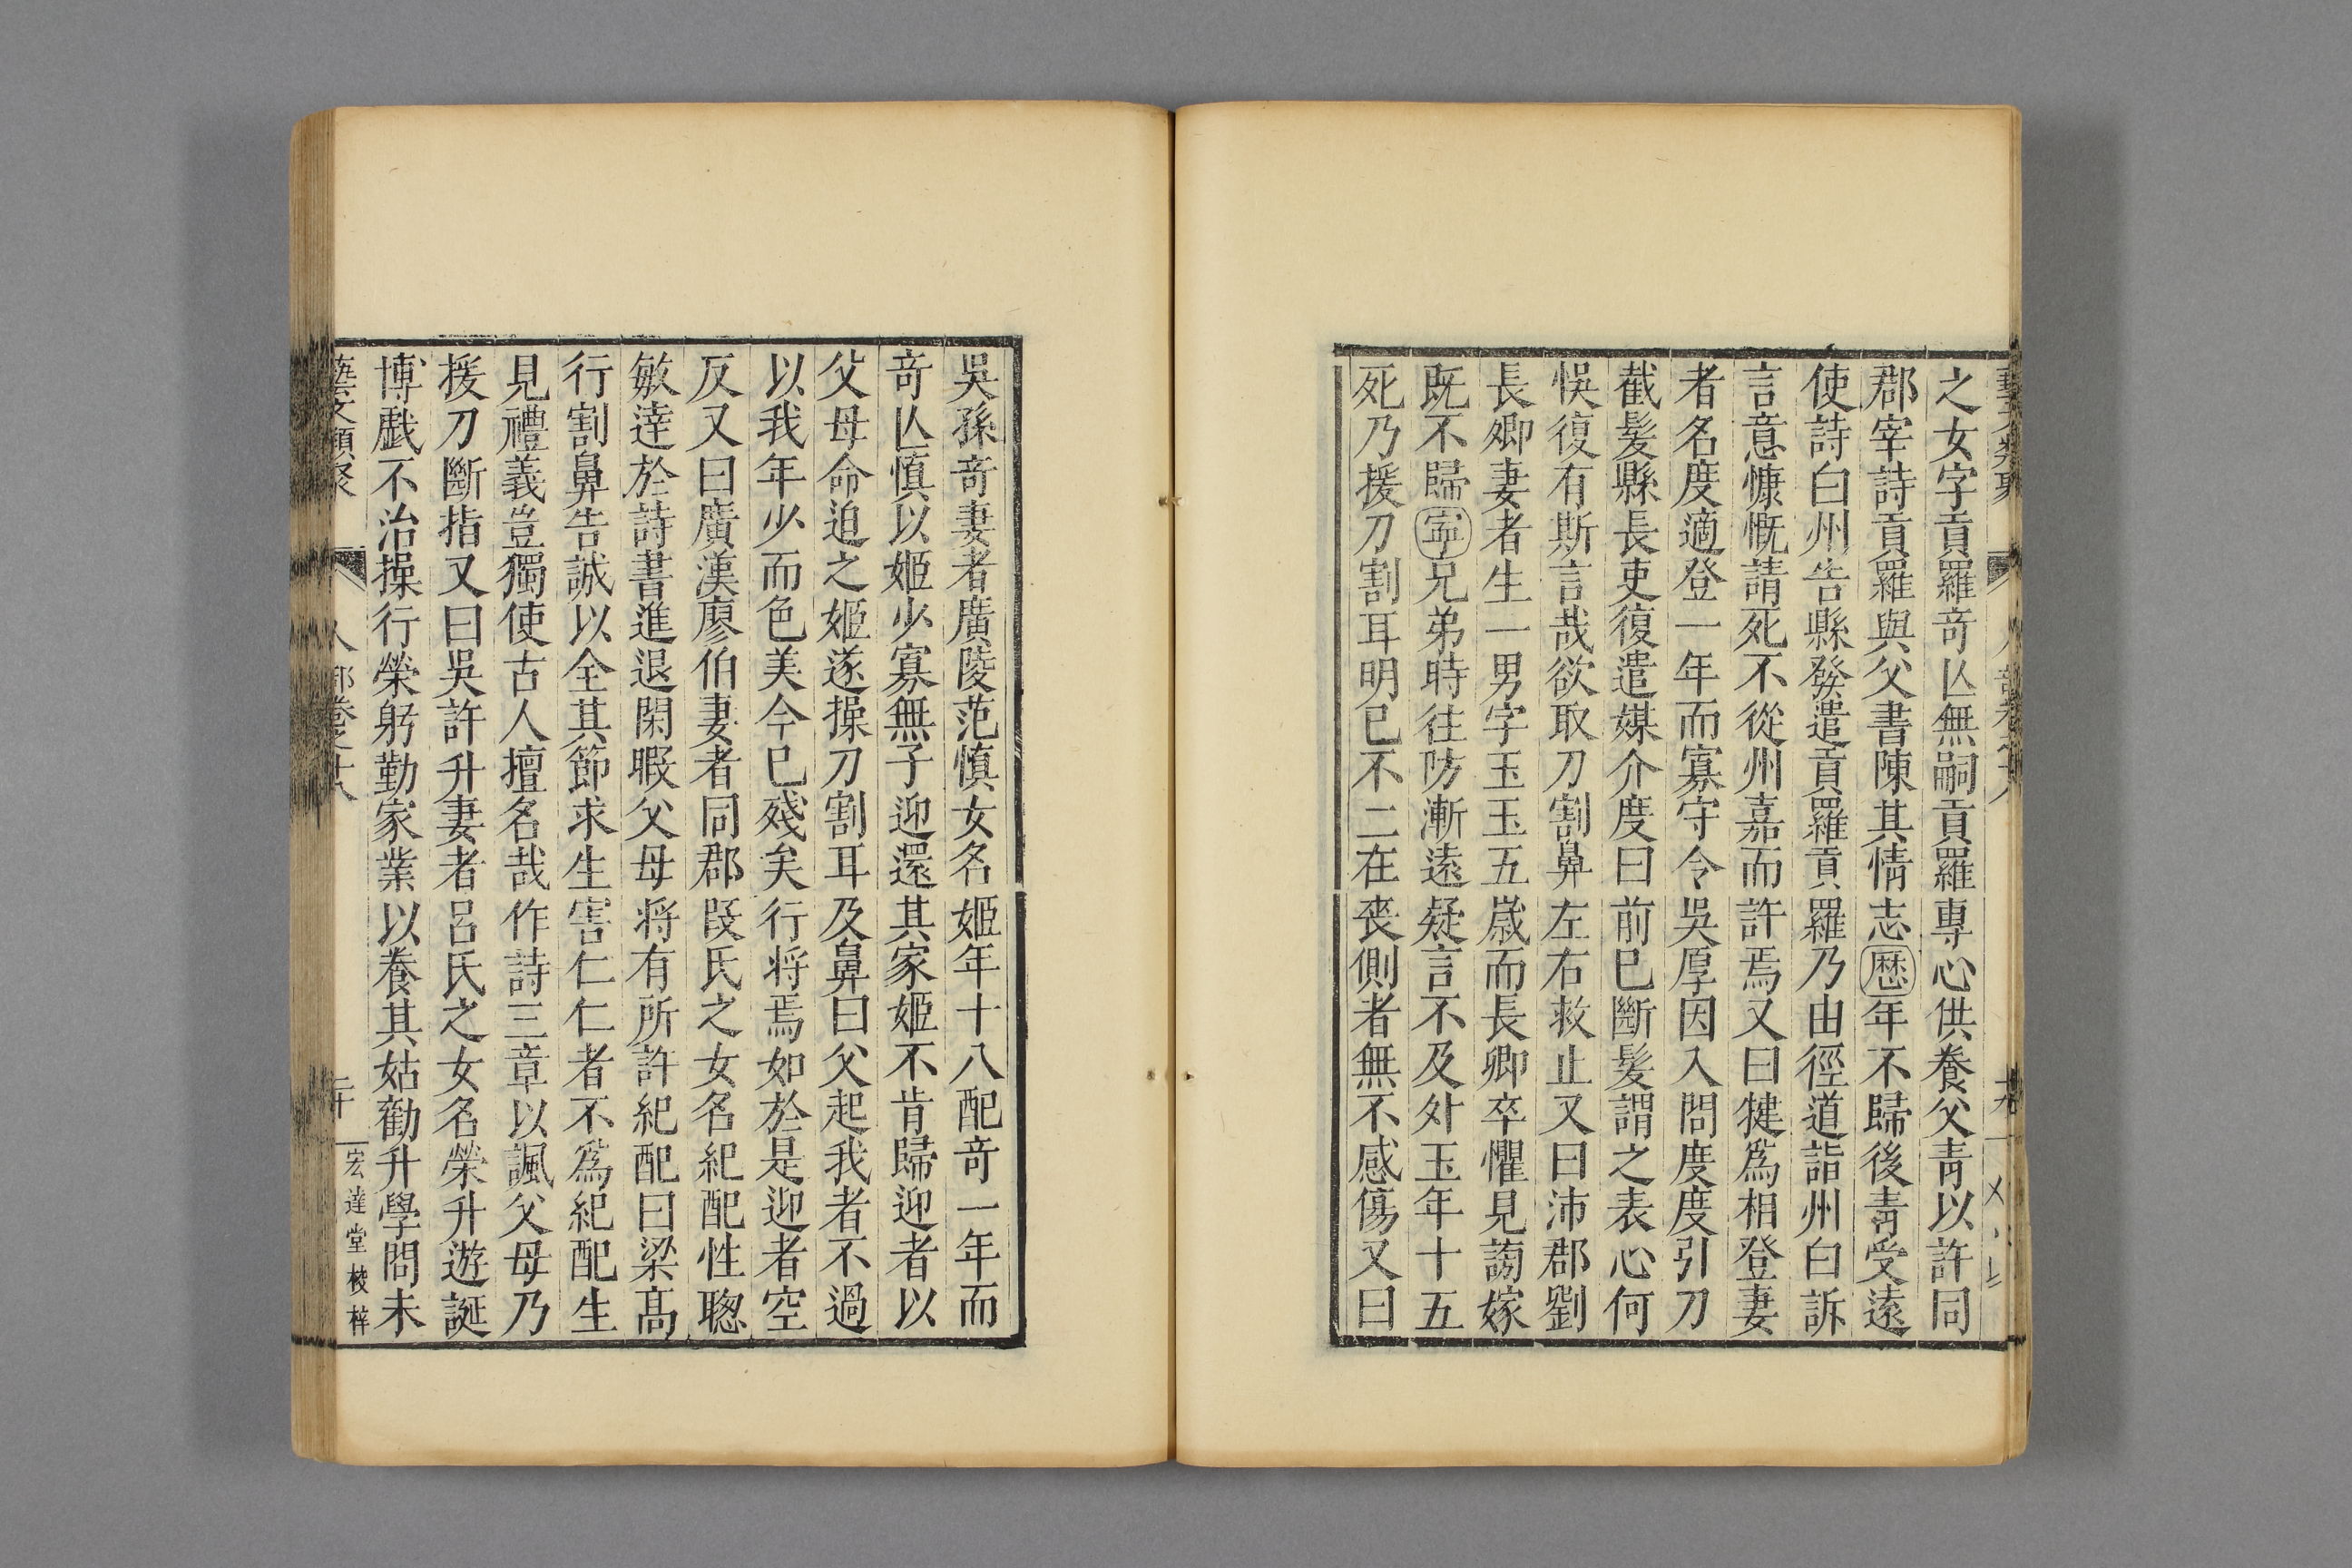 之女字貢羅奇亾無嗣貢羅專心供養父青以許同
郡宰詩貢羅與父書陳其情志歷年不歸後青受遠
使詩白州告縣發遣貢羅貢羅乃由徑道詣州白訴
言意慷慨請死不從州嘉而許焉又曰犍爲相登妻
者名度適登一年而寡守令吳厚因入問度度引刀
截髮縣長吏復遣媒介度曰前已斷髮謂之表心何
悞復有斯言哉欲取刀割鼻左右救止又曰沛郡劉
長卿妻者生一男字玉玉五歲而長卿卒懼見謫嫁
既不歸寧兄弟時往防漸遠疑言不及外玉年十五
死乃援刀割耳明已不二在喪側者無不感傷又曰
吳孫奇妻者廣陵范慎女名姬年十八配奇一年而
奇亾慎以姬少寡無子迎還其家姬不肯歸迎者以
父母命迫之姬遂操刀割耳及鼻曰父起我者不過
以我年少而色美今已殘矣行将焉如於是迎者空
反又曰廣漢廖伯妻者同郡段氏之女名紀配性聰
敏達於詩書進退閑暇父母将有所許紀配曰梁高
行割鼻告誠以全其節求生害仁仁者不爲紀配生
見禮義豈獨使古人擅名哉作詩三章以諷父母乃
援刀斷指又曰吳許升妻者呂氏之女名榮升遊誕
博戲不治操行榮躬勤家業以養其姑勸升學問未
藝文類聚 人部卷之十八 二十 宏達堂校梓